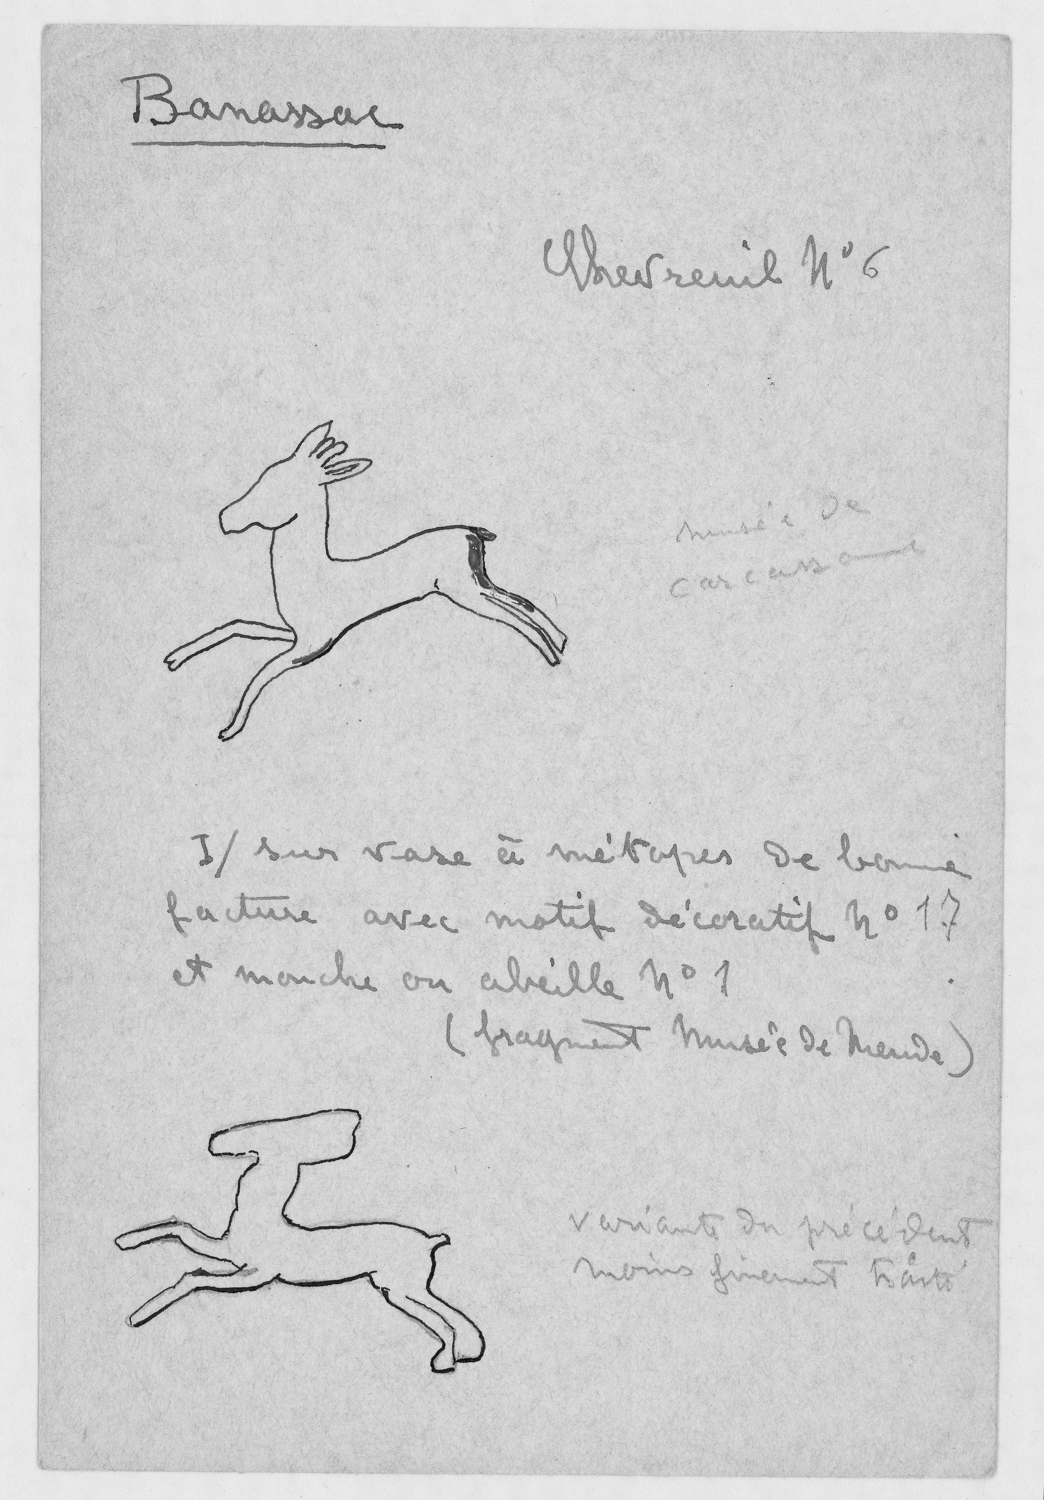 Banassac
Chevreuil N° 6
musée de
carcassonne
I/ sur vase à métopes de bonne
facture avec motif décoratif N° 17
et mouche ou abeille N° 1
(fragment Musée de Mende)
variante du précédent
moins finement traité